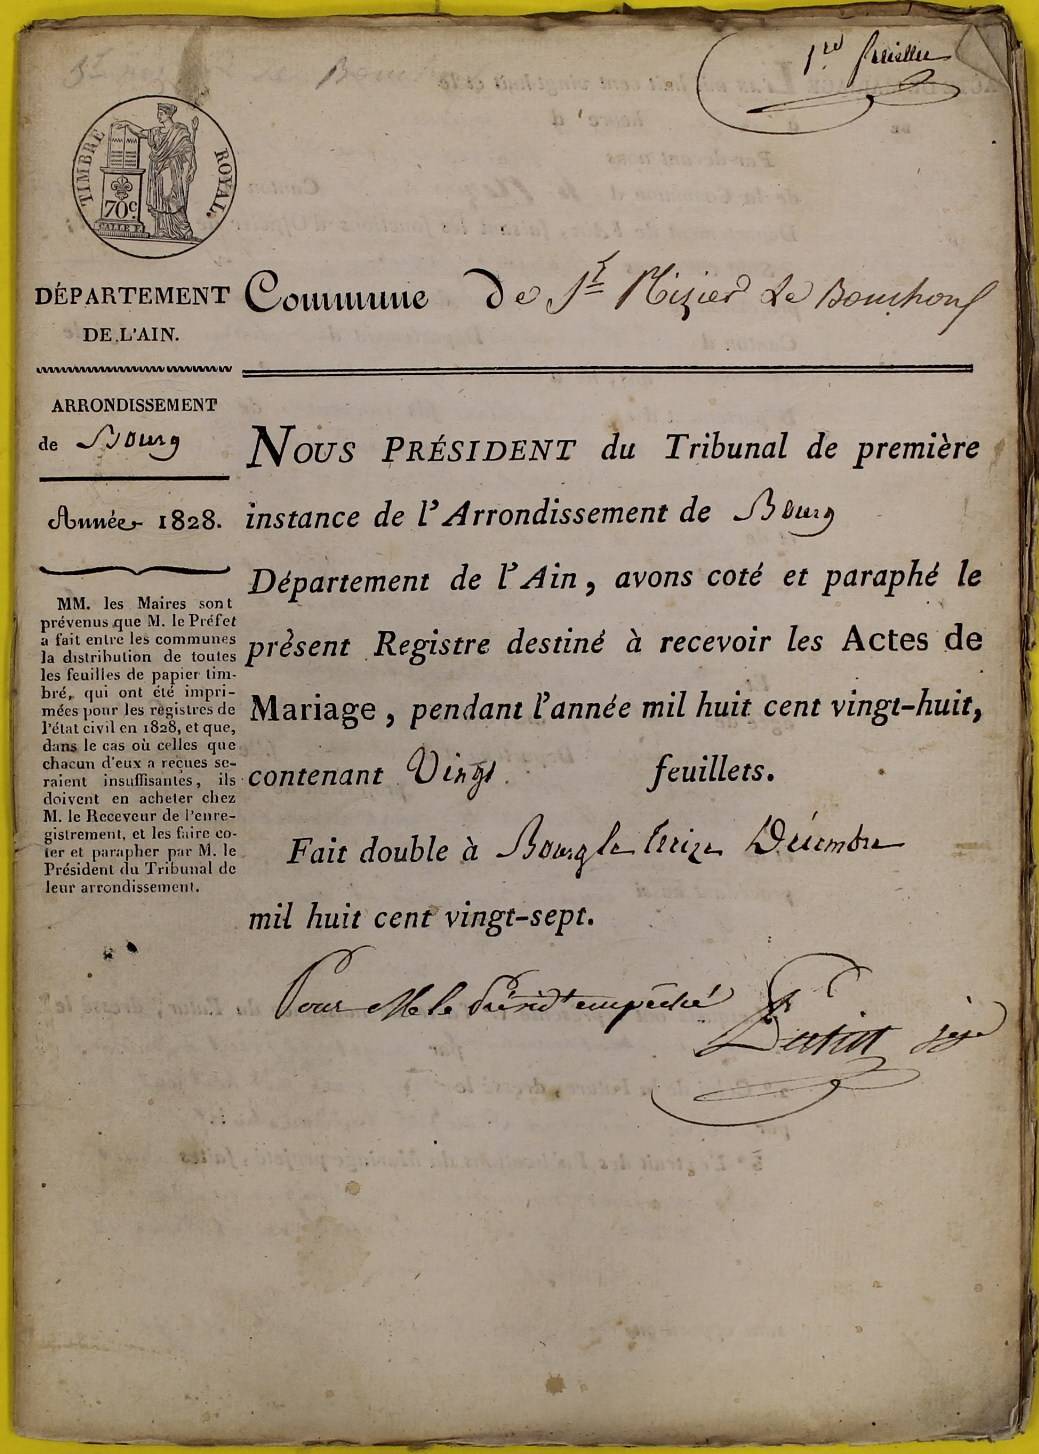 1.re feuillet
TIMBRE ROYAL.
70c
CALLE F
DÉPARTEMENT
DE L'AIN.
Commune De St Nizier Le Bouchoux
ARRONDISSEMENT
de Bourg
Année 1828.
MM. les Maires sont
prévenus que M. le Préfet
a fait entre les communes
la distribution de toutes
les feuilles de papier tim-
bré, qui ont été impri-
mées pour les registres de
l'état civil en 1828, et que,
dans le cas où celles que
chacun d'eux a reçues se-
raient insuffisantes, ils
doivent en acheter chez
M. le Receveur de l'enre-
gistrement, et les faire co-
ter et parapher par M. le
Président du Tribunal de
leur arrondissement.
NOUS PRÉSIDENT du Tribunal de première
instance de l'Arrondissement de Bourg
Département de l'Ain, avons coté et paraphé le
présent Registre destiné à recevoir les Actes de
Mariage, pendant l'année mil huit cent vingt-huit,
contenant Vingt feuillets.
Fait double à Bourg le treize Décembre
mil huit cent vingt-sept.
Pour Mr le Présidt empêché
juge